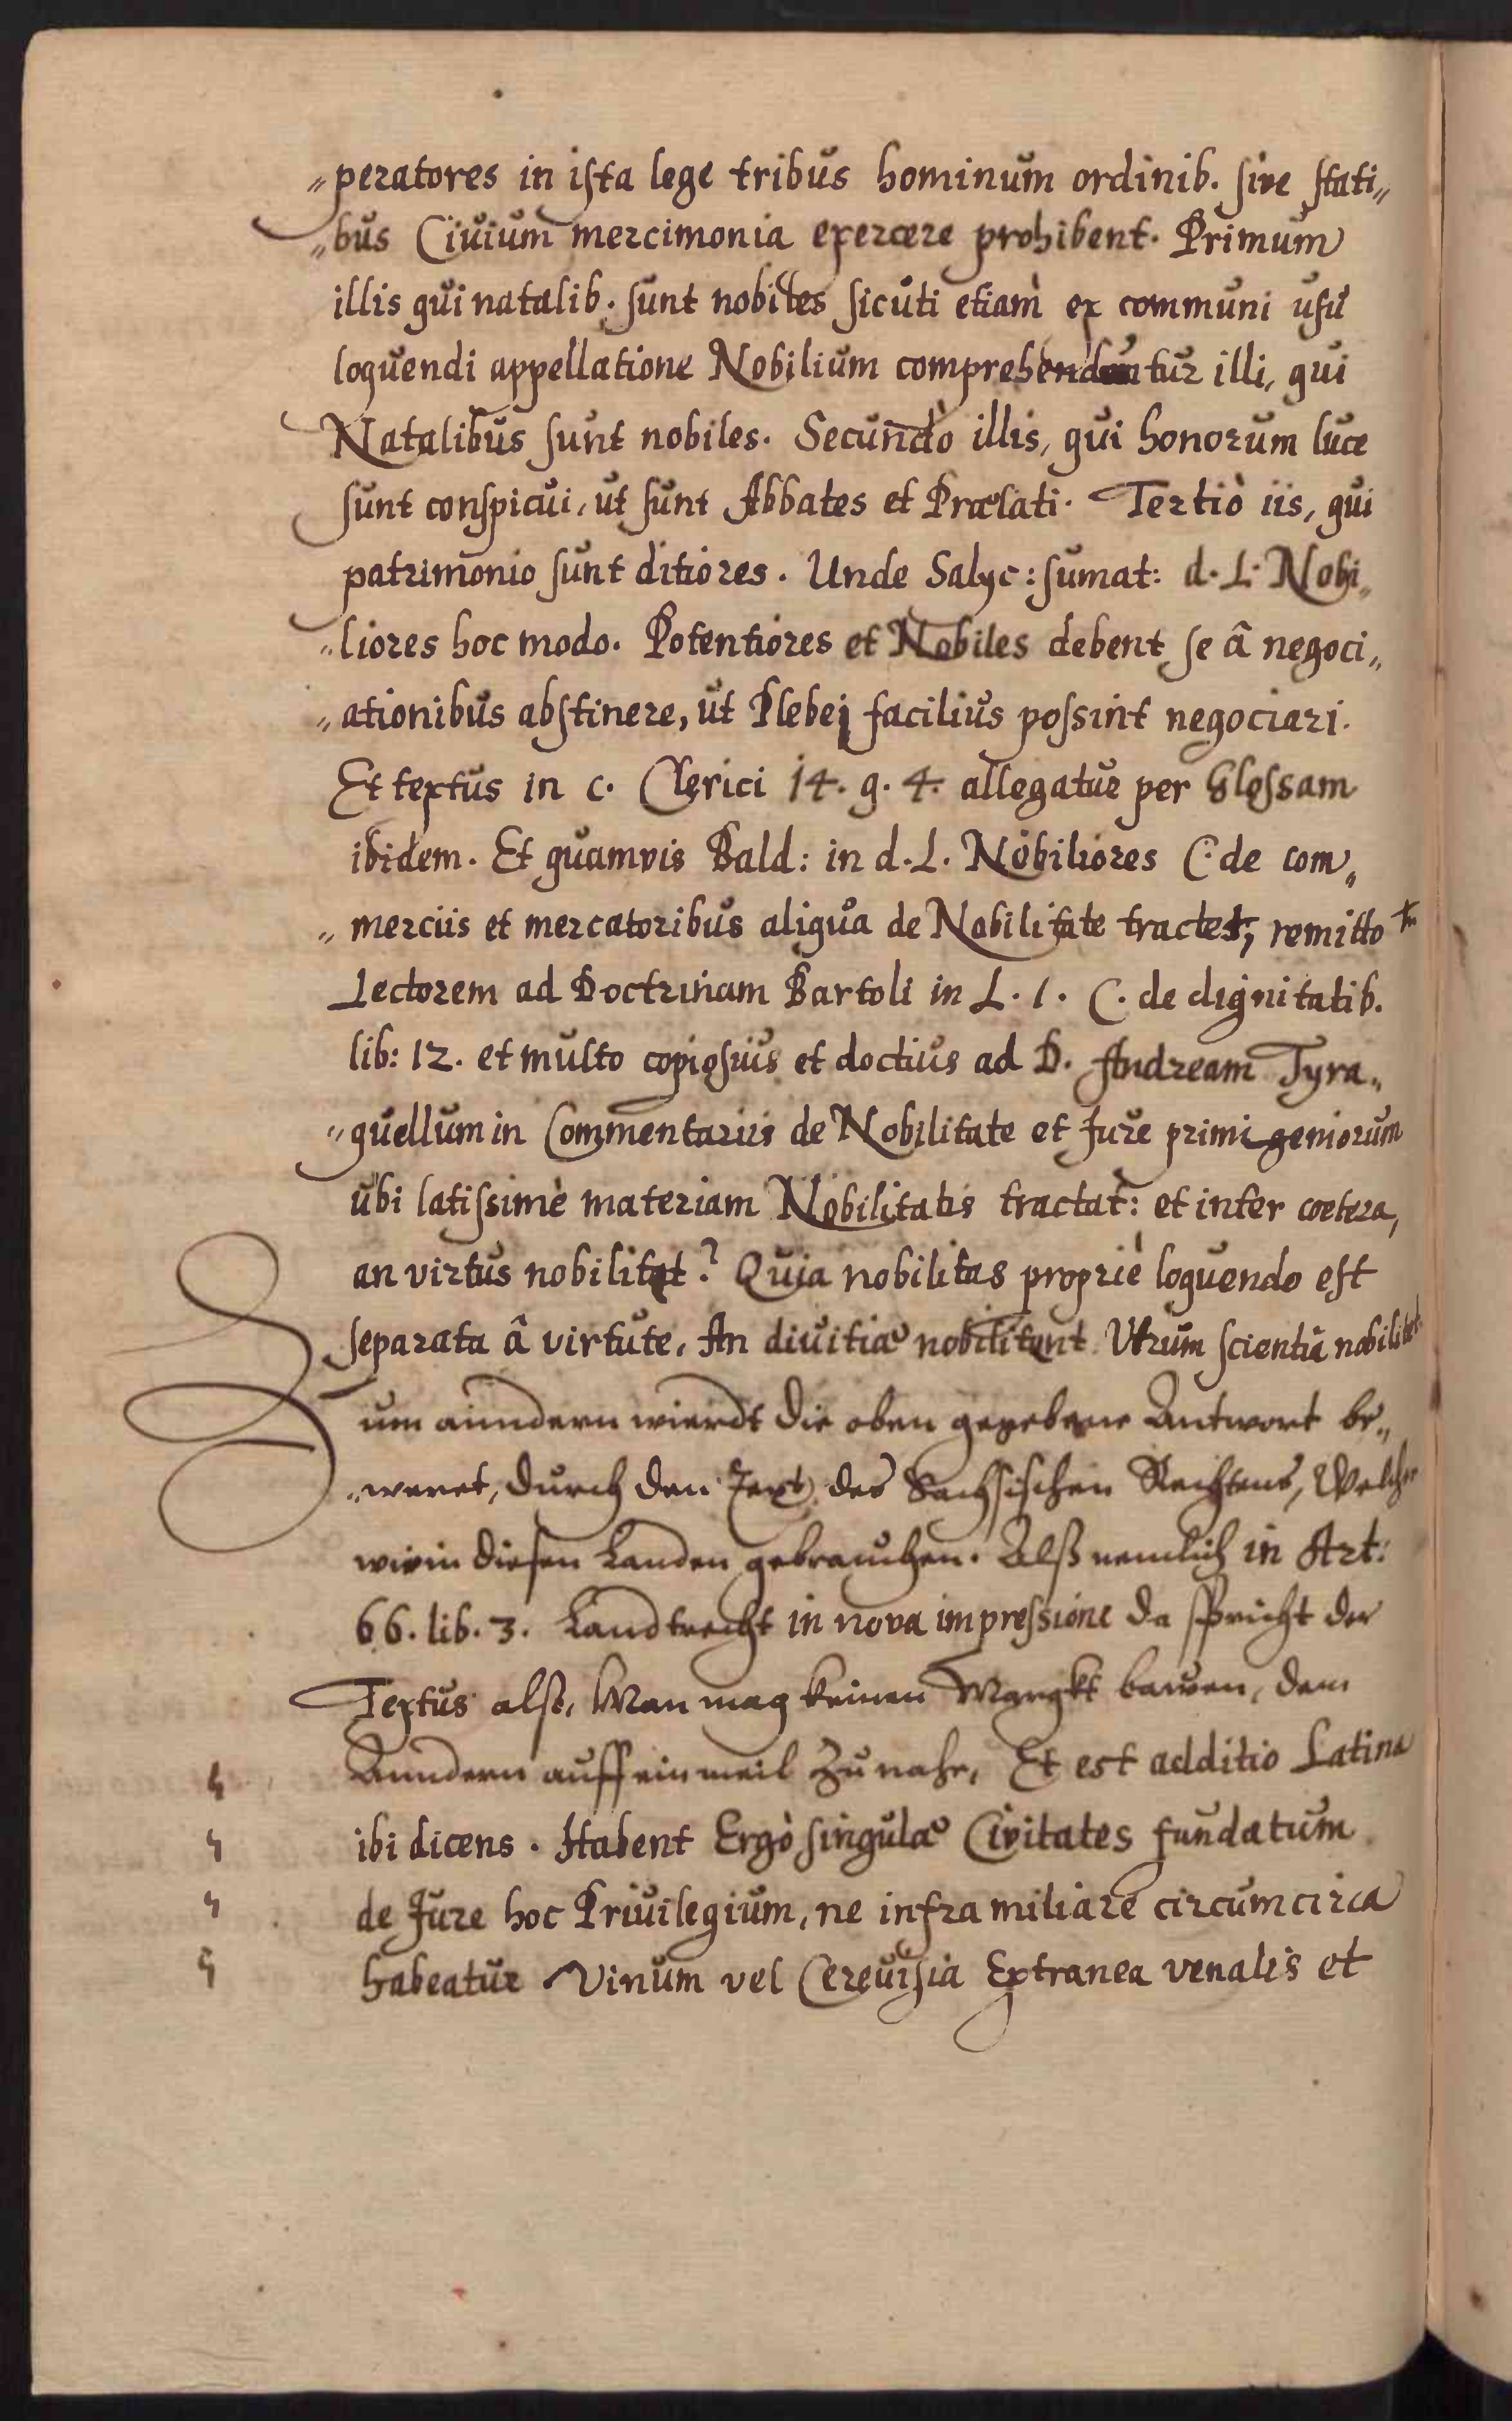 „peratores in ista lege tribus hominum ordinib. sive stati„
„bus Civium mercimonia exercere prohibent. Primum
illis qui natalib. sunt nobiles sicuti etiam ex communi usu
loquendi appellatione Nobilium comprehenduntur illi, qui
Natalibus sunt nobiles. Secundò illis, qui honorum luce
sunt conspicui, ut sunt Abbates et Prælati. Tertiò iis, qui
patrimonio sunt ditiores. Unde Salyc: sumat: d. L. Nobi„
„liores hoc modo. Potentiores et Nobiles debent se â negoci„
„ationibus abstinere, ut Plebej facilius possint negociari.
Et textus in c. Clerici 14. q. 4. allegatur per Glossam
ibidem. Et quamvis Bald: in d. L. Nobiliores C. de com„
„merciis et mercatoribus aliqua de Nobilitate tractet, remitto
Lectorem ad Doctrinam Bartoli in L. 1. C. de dignitatib.
lib: 12. et multo copiosius et doctius ad D. Andream Tyra„
„quellum in Commentariis de Nobilitate et Jure primigeniorum
ubi latissimè materiam Nobilitatis tractat: et inter cœtera,
an virtus nobilitat? Quia nobilitas propriè loquendo est
separata â virtute, An divitiæ nobilitant Utrum scientia nobilitet.
Zum anndern wierdt die oben gegebene Antwort be„
„weret, durch den Text des Sachsischen Rechtens, Welches
wir in diesen Landen gebrauchen. Alß nemlich in Art:
66. lib. 3. Landtrecht in nova impressione da spricht der
Textus also, Man mag keinen Margkt bawen, dem
Anndern auff ein meil zu nahe, Et est additio Latina
ibi dicens. Habent Ergò singulæ Civitates fundatum
de Jure hoc Privilegium, ne infra miliare circumcirca
habeatur Vinum vel Cerevisia Extranea venalis et